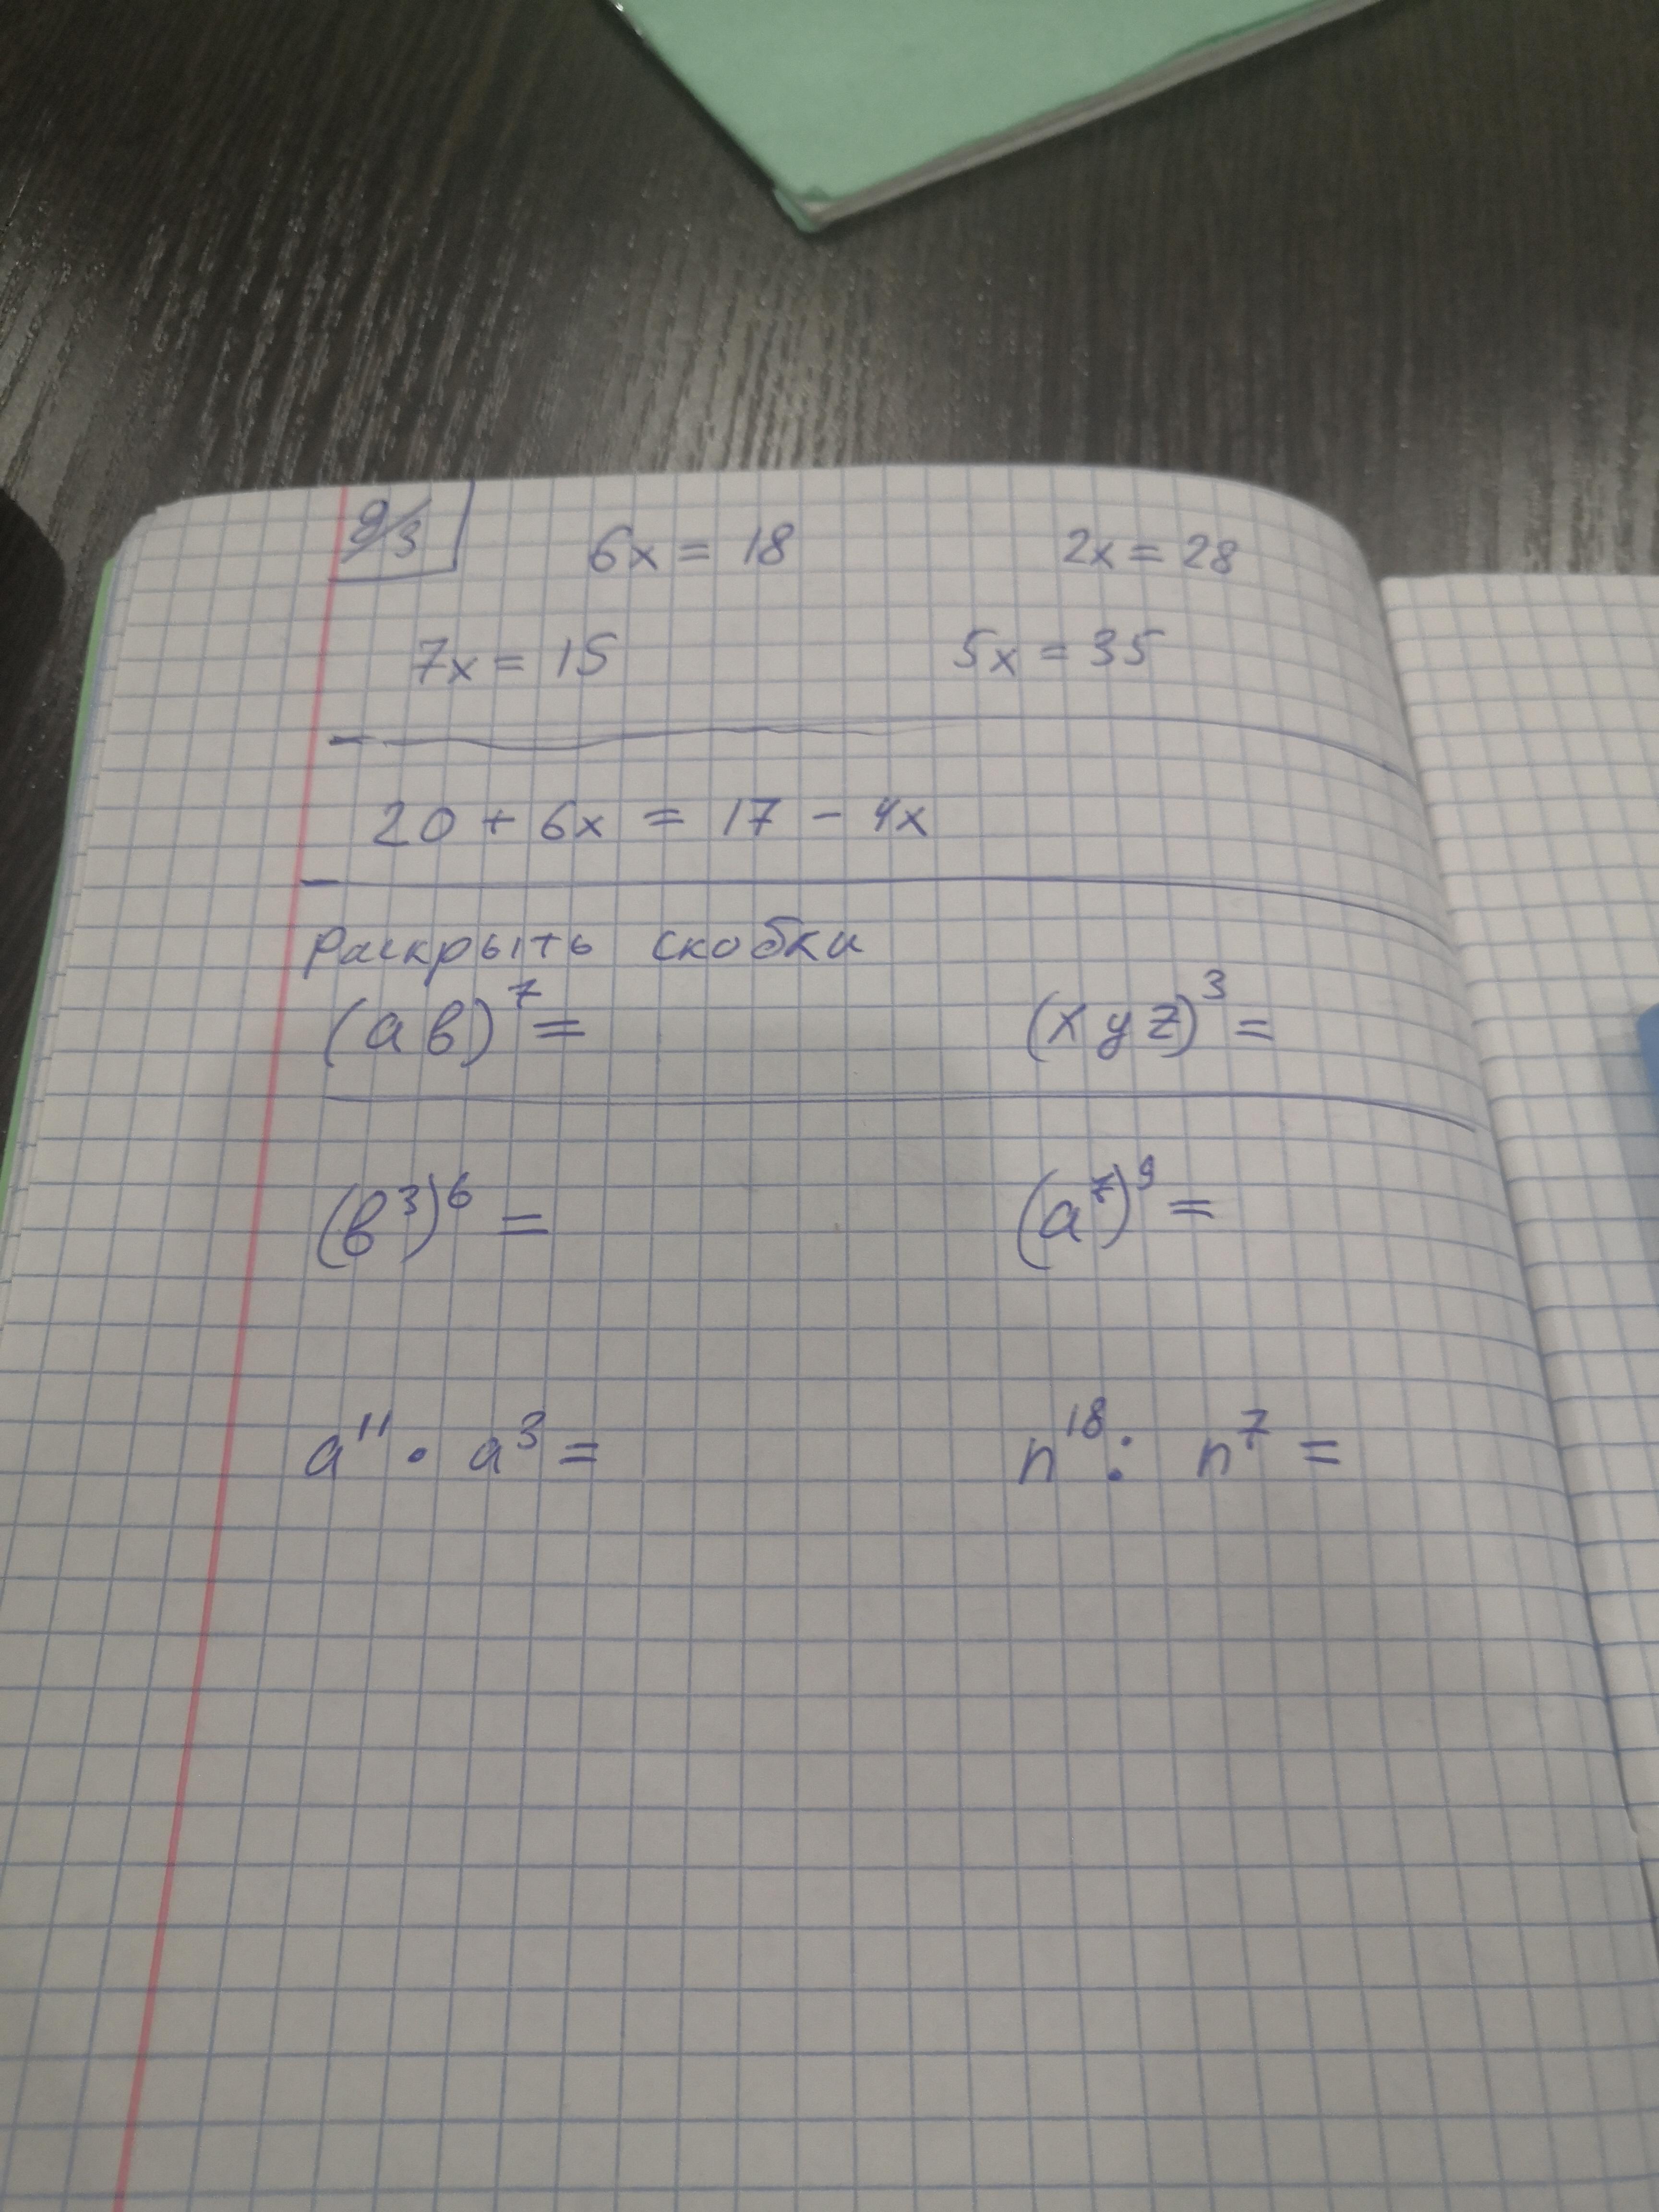 д/з 6x = 18 2x = 28
7x = 15 5x = 35
20 + 6x = 17 - 4x
Раскрыть скобки
(ab)⁷ = (xyz)³ =
(b³)⁶ = (a⁷)⁹ =
a¹¹ · a³ = n¹⁸ : n⁷ =